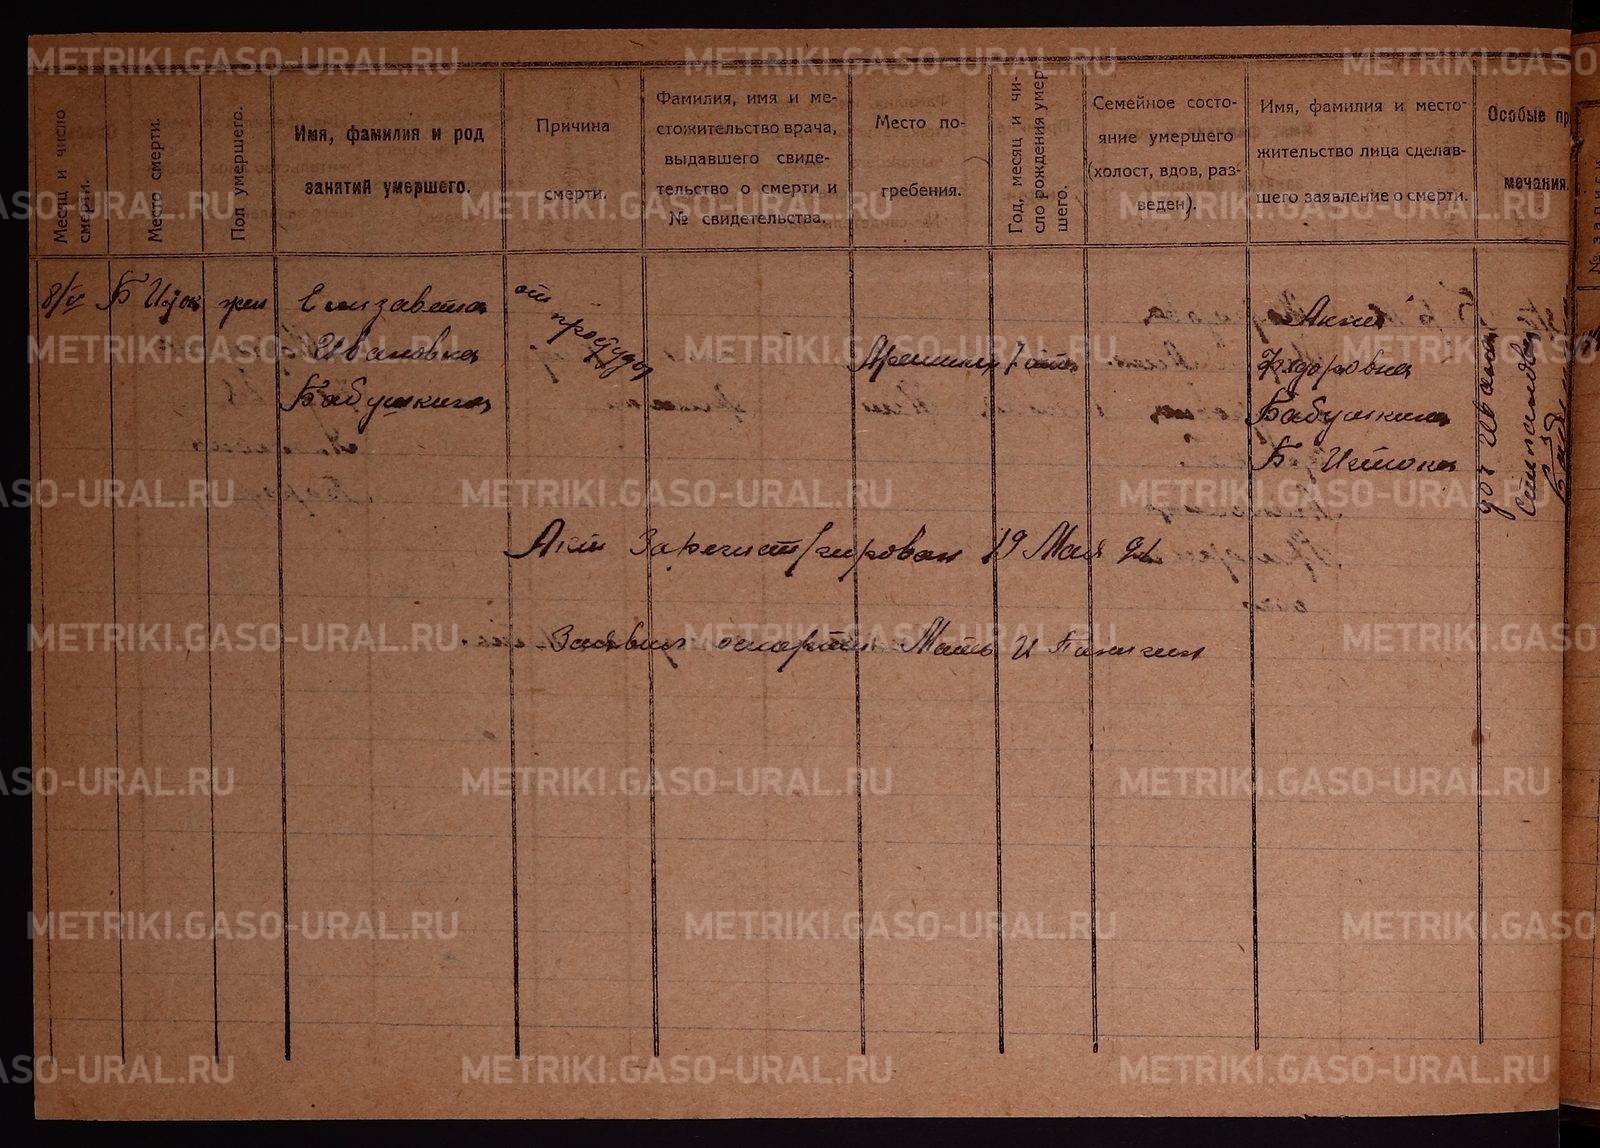 Месяц и число
смерти.
Место смерти.
Пол умершего.
Имя, фамилия и род
занятий умершего.
Причина
смерти.
Фамилия, имя и ме-
стожительство врача,
выдавшего свиде-
тельство о смерти и
№ свидетельства.
Место по-
гребения.
Год, месяц и чи-
сло рождения умер
шего.
Семейное состо-
яние умершего
(холост, вдов, раз-
веден).
Имя, фамилия и место-
жительство лица сделав-
шего заявление о смерти.
Особые пр
мечания.
№ записи
8/V
Б Исток
жен
Елизавета
Ивановна
Бабушкина
от
простуды
1 год
Анна
Федоровна
Бабушкина
Б Истока
доч Ивана
Степанова
Акт Зарегистрирован 19 Мая 21
Заявил о смерти Мать И
METRIKI.GASO-URAL.RU